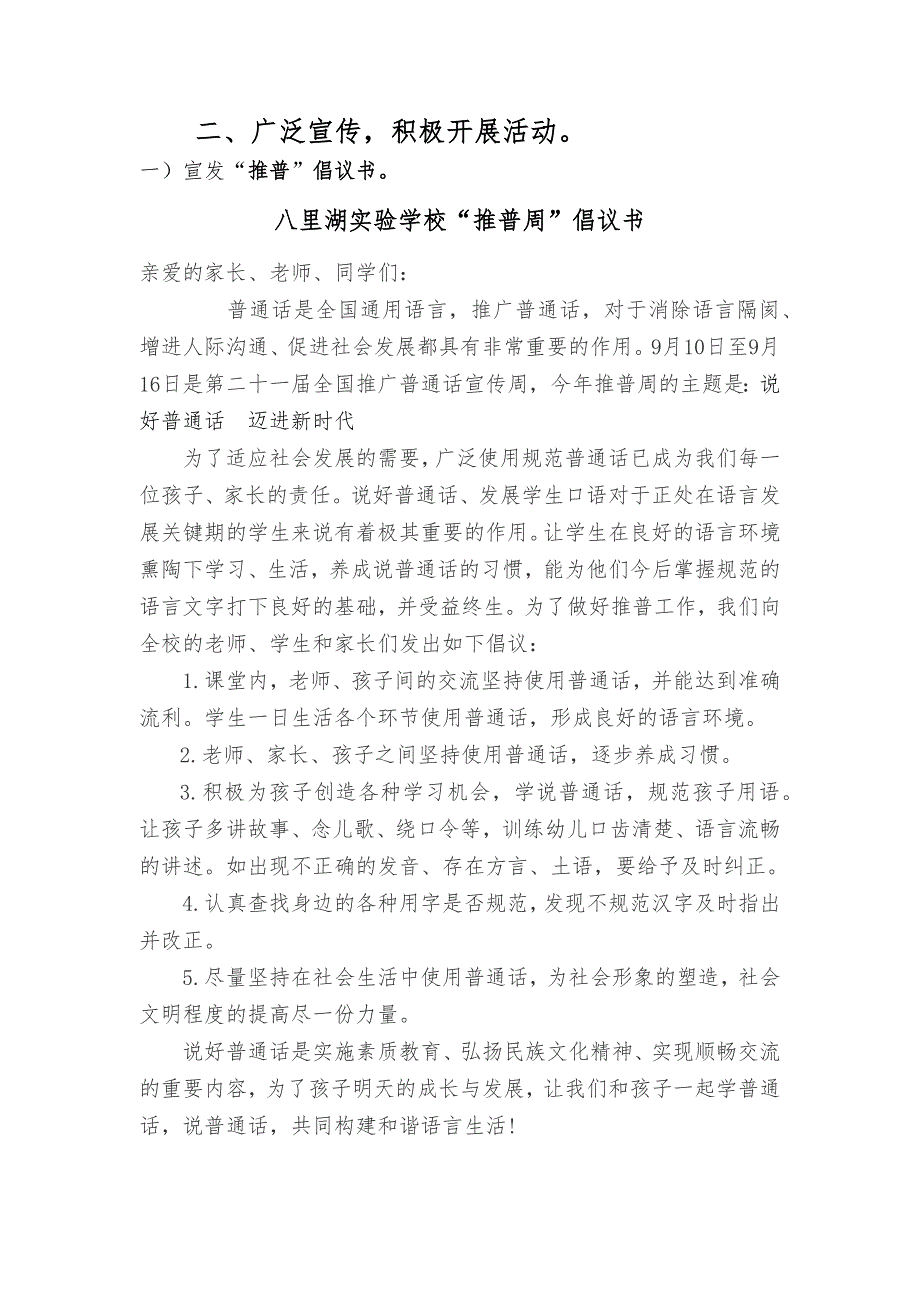 二、广泛宣传，积极开展活动。
一）宣发“推普”倡议书。
八里湖实验学校“推普周”倡议书
亲爱的家长、老师、同学们：
普通话是全国通用语言，推广普通话，对于消除语言隔阂、
增进人际沟通、促进社会发展都具有非常重要的作用。9月10日至9月
16日是第二十一届全国推广普通话宣传周，今年推普周的主题是：说
好普通话　迈进新时代
为了适应社会发展的需要，广泛使用规范普通话已成为我们每一
位孩子、家长的责任。说好普通话、发展学生口语对于正处在语言发
展关键期的学生来说有着极其重要的作用。让学生在良好的语言环境
熏陶下学习、生活，养成说普通话的习惯，能为他们今后掌握规范的
语言文字打下良好的基础，并受益终生。为了做好推普工作，我们向
全校的老师、学生和家长们发出如下倡议：
1.课堂内，老师、孩子间的交流坚持使用普通话，并能达到准确
流利。学生一日生活各个环节使用普通话，形成良好的语言环境。
2.老师、家长、孩子之间坚持使用普通话，逐步养成习惯。
3.积极为孩子创造各种学习机会，学说普通话，规范孩子用语。
让孩子多讲故事、念儿歌、绕口令等，训练幼儿口齿清楚、语言流畅
的讲述。如出现不正确的发音、存在方言、土语，要给予及时纠正。
4.认真查找身边的各种用字是否规范，发现不规范汉字及时指出
并改正。
5.尽量坚持在社会生活中使用普通话，为社会形象的塑造，社会
文明程度的提高尽一份力量。
说好普通话是实施素质教育、弘扬民族文化精神、实现顺畅交流
的重要内容，为了孩子明天的成长与发展，让我们和孩子一起学普通
话，说普通话，共同构建和谐语言生活!